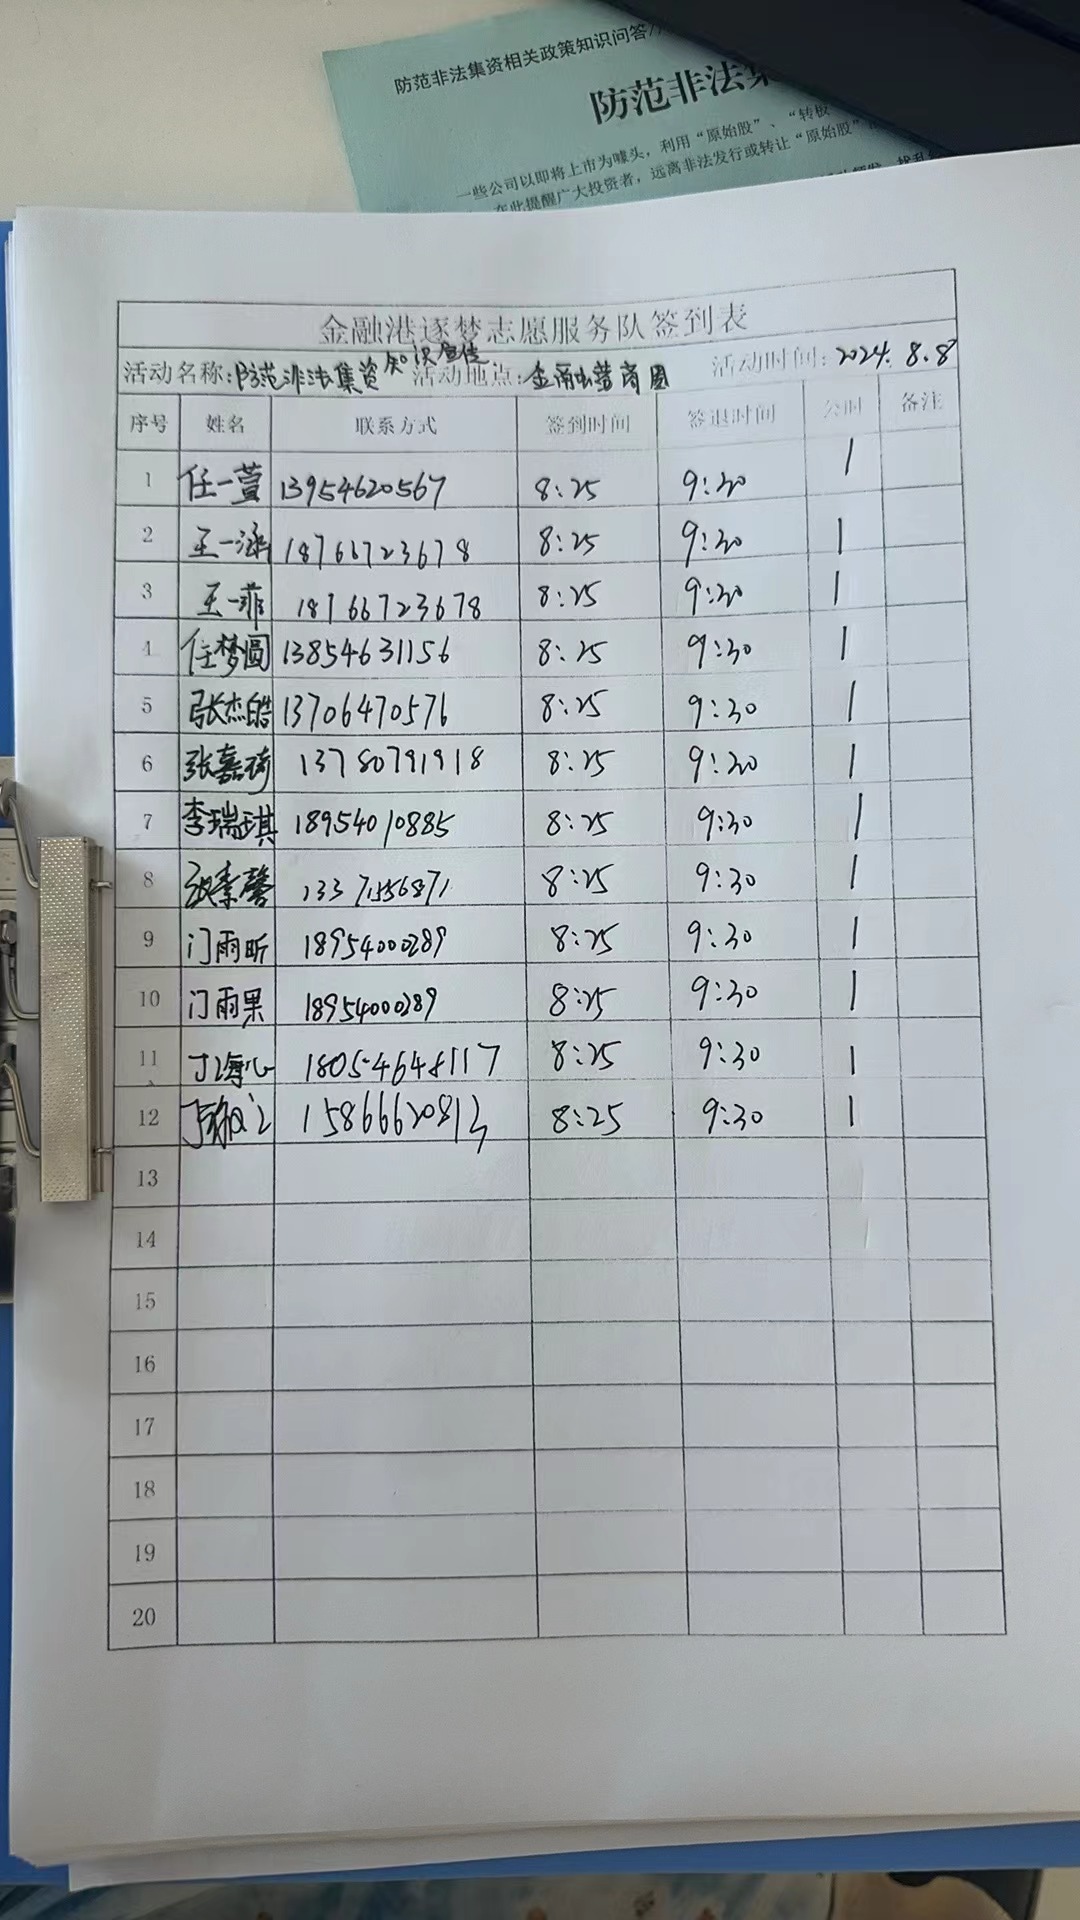 防范非法集资相关政策知识问答
防范非法集
一些公司以即将上市为噱头，利用“原始股”、“转板
在此提醒广大投资者，远离非法发行或转让“原始股”
金融港逐梦志愿服务队签到表
活动名称：防范非法集资知识宣传 活动地点： 商圈 活动时间：2024.8.8
序号 姓名 联系方式 签到时间 签退时间 公时 备注
1 任一萱 13954620567 8:25 9:30 1
2 王一涵 18766723678 8:25 9:30 1
3 王一菲 18766723678 8:25 9:30 1
4 任梦圆 13854631156 8:25 9:30 1
5 张杰皓 13706470576 8:25 9:30 1
6 张嘉琦 13780791918 8:25 9:30 1
7 李瑞琪 18954010885 8:25 9:30 1
8 张素馨 13371556871 8:25 9:30 1
9 门雨昕 18954000289 8:25 9:30 1
10 门雨果 18954000289 8:25 9:30 1
11 8:25 9:30 1
12 8:25 9:30 1
13
14
15
16
17
18
19
20